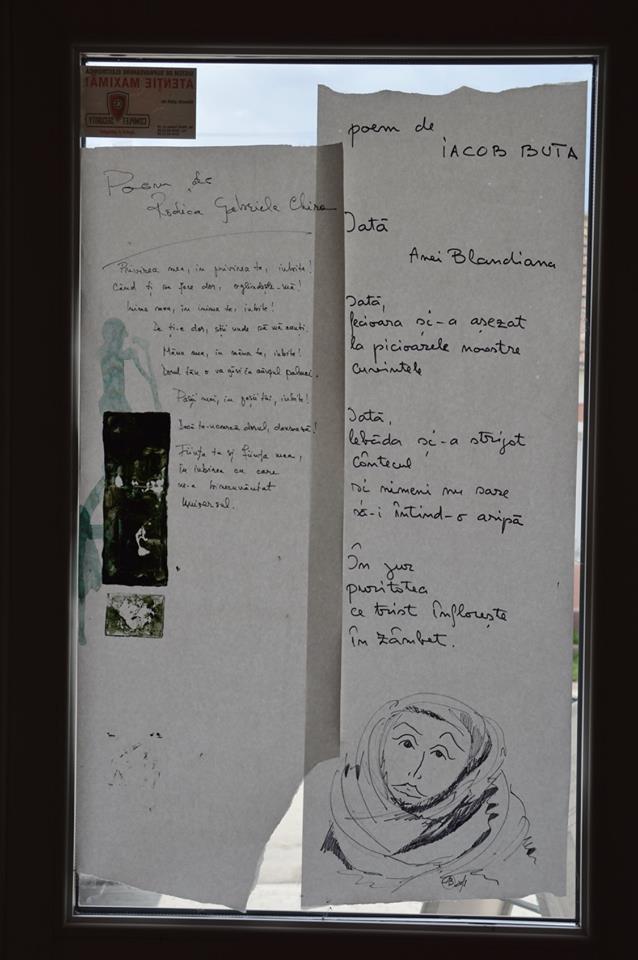 ATENȚIE MAXIMĂ!
COMPLET SECURITY
Poem de
Rodica Gabriela Chira
Privirea mea, în privirea ta, iubite!
Când ți se face dor, oglindește-mă!
Inima mea, în inima ta, iubite!
De ți-e dor, știi unde să mă cauți.
Mâna mea, în mâna ta, iubite!
Dorul tău o va găsi în căușul palmei.
Pașii mei, în pașii tăi, iubite!
Încă te-ncearcă dorul, dansează!
Ființa ta și ființa mea,
în iubirea cu care
ne-a binecuvântat
Universul.
poem de
IACOB BUTA
Iată
Anei Blandiana
Iată,
fecioara și-a așezat
la picioarele noastre
cuvintele
Iată,
lebăda și-a strigat
cântecul
și nimeni nu sare
să-i întind-o aripă
În jur
puritatea
ce trist înflorește
în zâmbet.